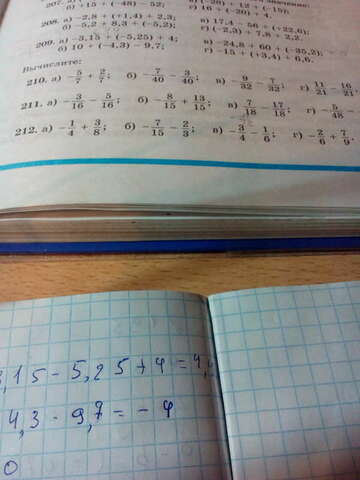 207.
б) 15 + (−48) − 52;
г) 16 + (−20) + 4.
208. а) −2,8 + (+1,4) + 2,3;
б) −5,2 + 8,3 + (−5,2);
в) 17,4 − 56 + (+22,6);
г) (−2,3) + 7,8 − 2,2.
209. а) −3,15 + (−5,25) + 4;
б) 10 + (−4,3) − 9,7;
в) −24,8 + 60 + (−35,2);
г) −15 + (+3,4) + 6,6.
Вычислите:
210. а) −5/7 + 2/7; б) −7/40 − 3/40; в) −9/32 − 7/32; г) 11/21 − 16/21.
211. а) −3/16 − 5/16; б) −8/15 + 13/15; в) −7/18 − 17/18; г) −5/48
212. а) −1/4 + 3/8; б) −7/15 − 2/3; в) −3/4 − 1/6; г) −2/6 + 7/9.
,15 − 5,25 + 4 = 4,
4,3 − 9,7 = − 4
0